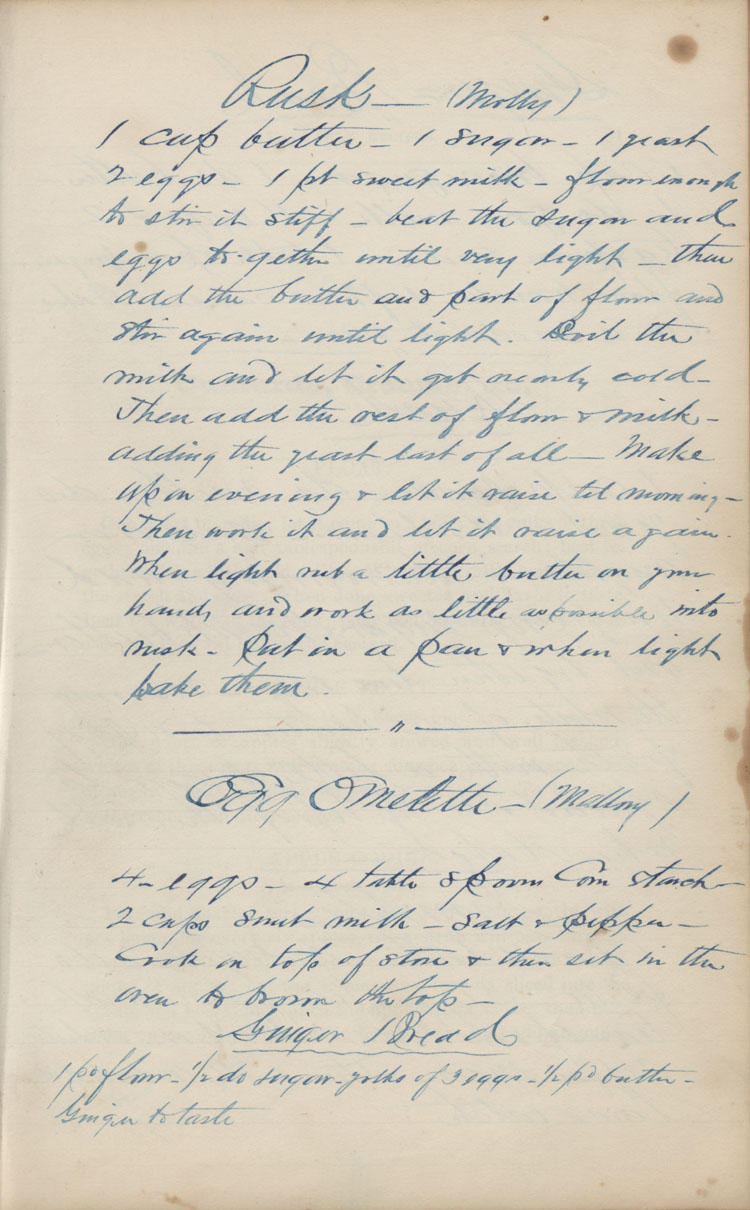 Rusk — (Molly)
1 cup butter - 1 sugar - 1 yeast
2 eggs - 1 pt sweet milk - flour enough
to stir it stiff - beat the sugar and
eggs to-gether until very light - then
add the butter and part of flour and
stir again until light. Boil the
milk and let it get nearly cold -
Then add the rest of flour & milk -
adding the yeast last of all - Make
up in evening & let it raise til morning -
Then work it and let it raise again.
When light rub a little butter on your
hands and work as little as possible into
rusk - Put in a pan & when light
bake them.
"
Egg Omelette - (Mallory)
4 - eggs - 4 table spoons Corn starch -
2 cups sweet milk - salt & pepper -
Cook on top of stove & then set in the
oven to brown the top -
Ginger Bread
1 pd flour - 1/2 do sugar - yolks of 3 eggs - 1/2 pd butter -
Ginger to taste